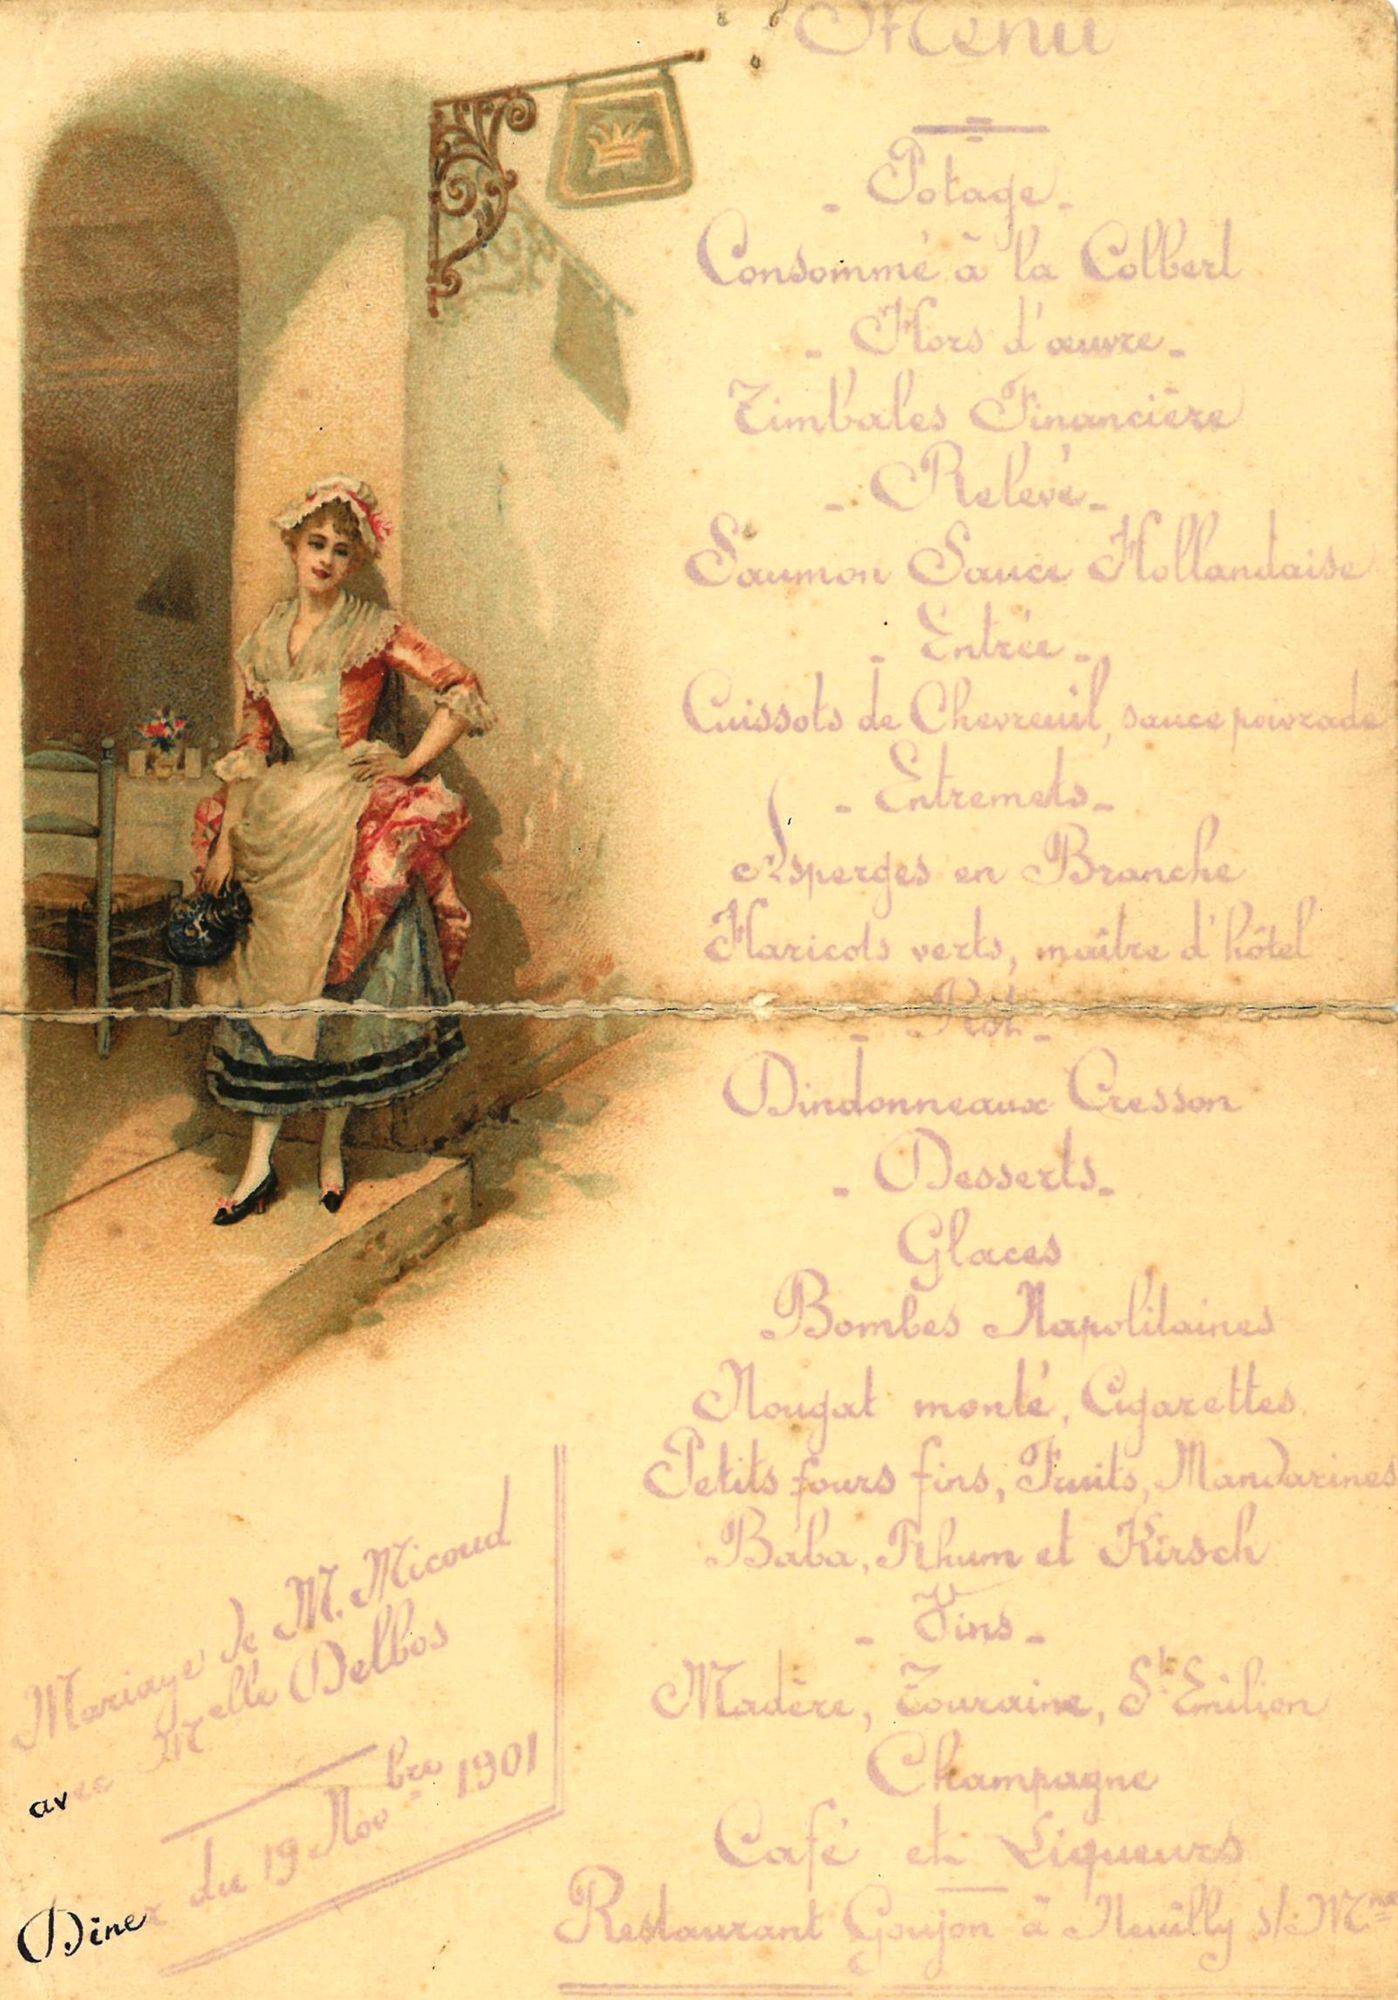 Menu
- Potage -
Consommé à la Colbert
- Hors d'œuvre -
Timbales Financière
- Relevé -
Saumon Sauce Hollandaise
- Entrée -
Cuissots de Chevreuil, sauce poivrade
- Entremets -
Asperges en Branche
Haricots verts, maître d'hôtel
- Rôt -
Dindonneaux Cresson
- Desserts -
Glaces
Bombes Napolitaines
Nougat monté, Cigarettes
Petits fours fins, Fruits, Mandarines
Baba, Rhum et Kirsch
- Vins -
Madère, Touraine, St Emilion
Champagne
Café et Liqueurs
Restaurant Goujon à Neuilly s/Mne
Mariage de M. Micoud
avec Melle Delbos
Dîner du 19 Novbre 1901